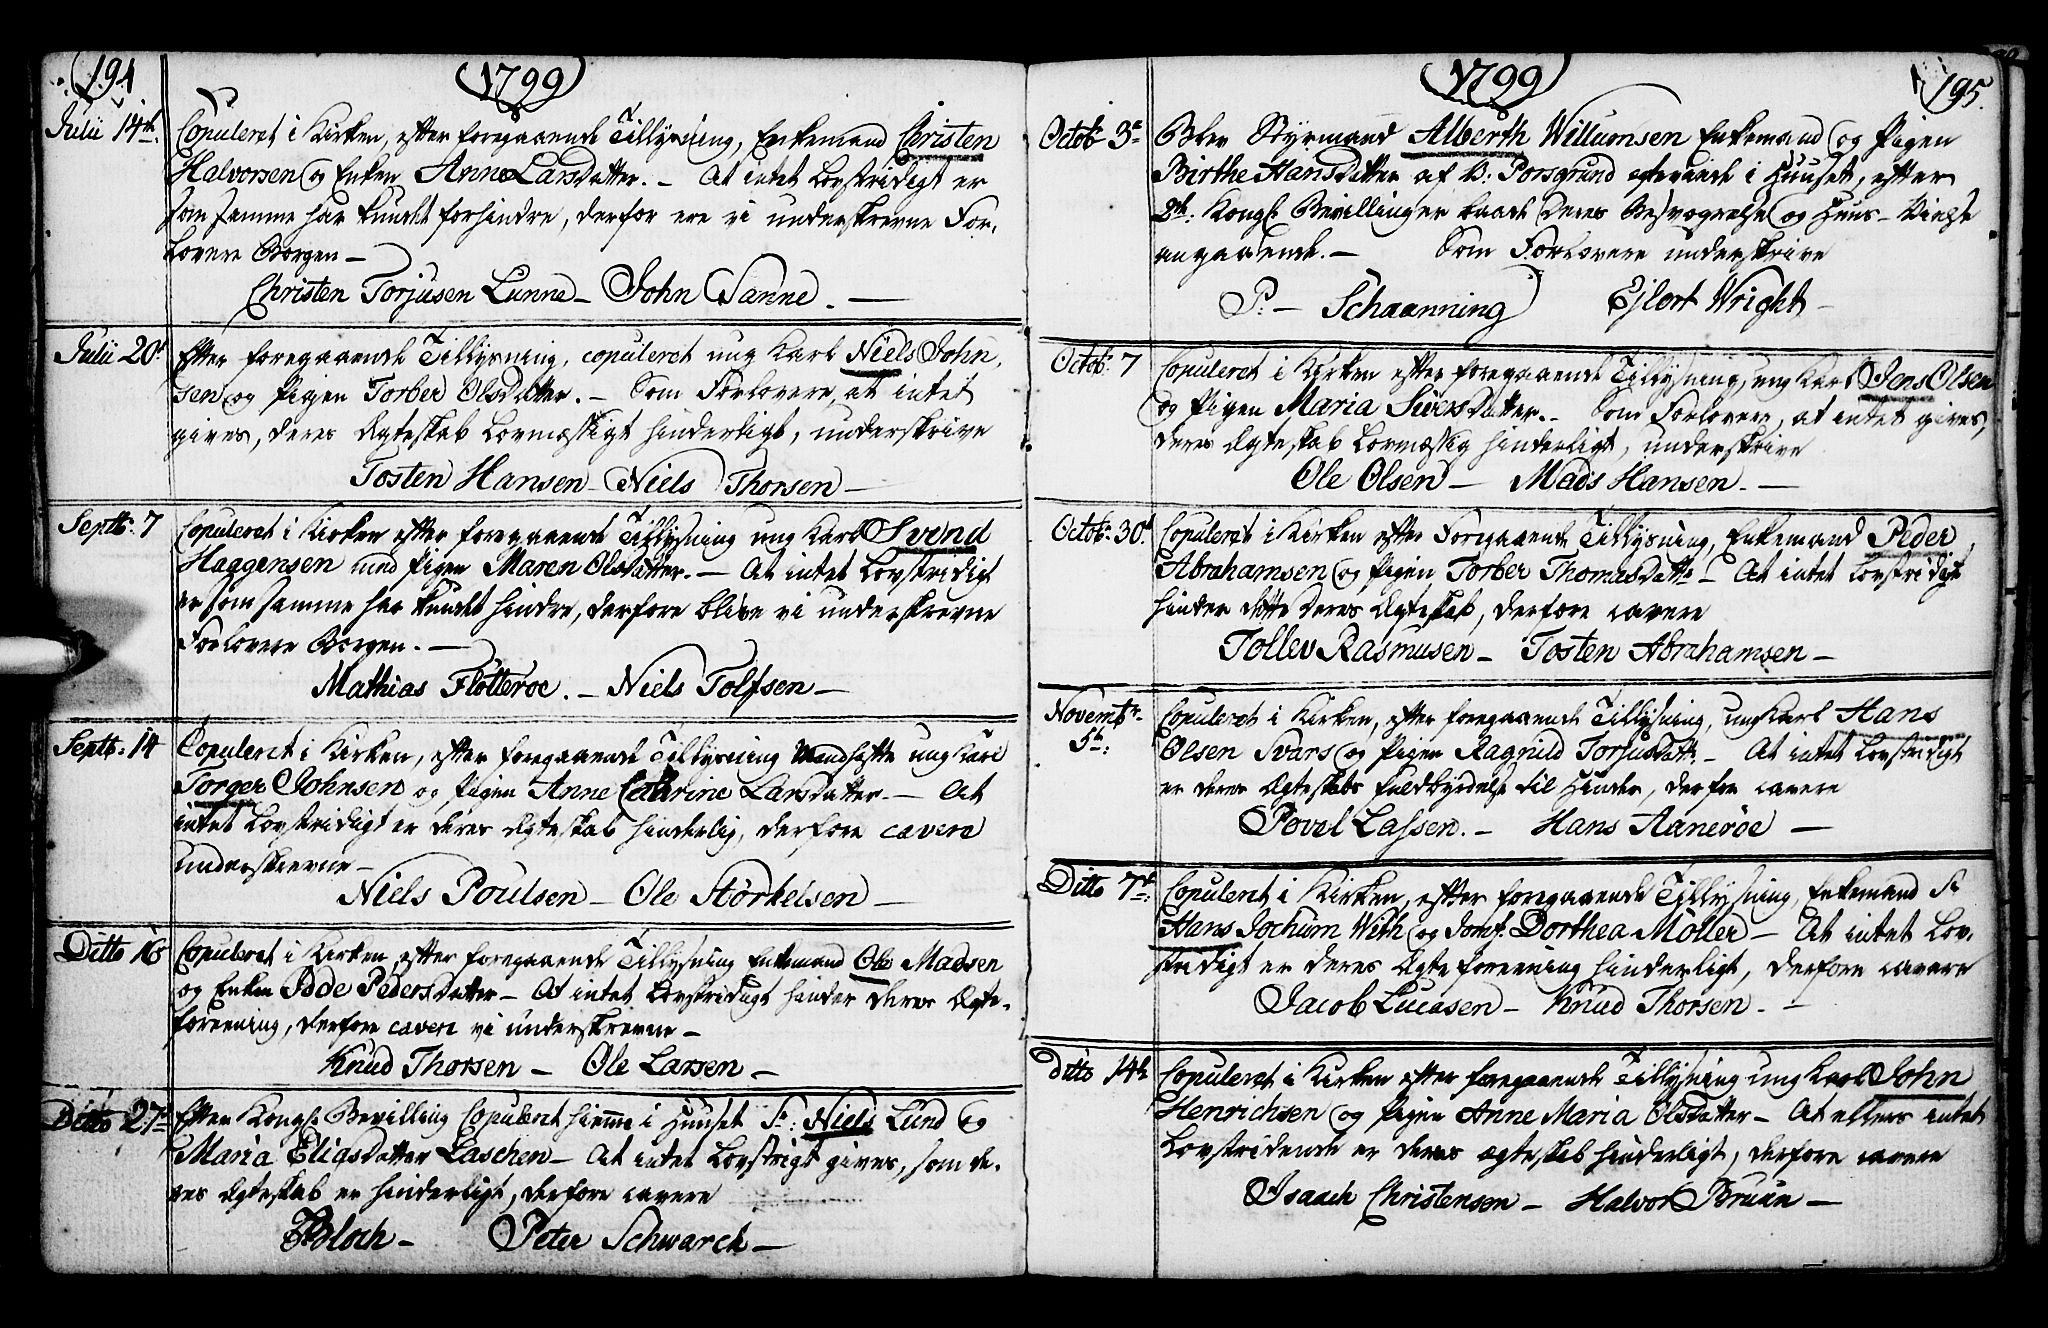 194
1799
Julii 14de Copuleret i Kirken, efter foregaaende Tillysning, Enkemand Christen
Halvorsen og Enken Anne Larsdatter. – At intet Lovstridigt er
som samme har kundet forhindre, derfor ere vi underskrevne For-
lovere Borgen –
Christen Torjusen Lunne – John Sanne. –
Julii 20d Efter foregaaende Tillysning, copuleret ung Karl Niels John-
sen og Pigen Torber Olsdatter. – Som Forlovere, at intet
gives, deres Ægteskab Lovmæssigt hinderligt, underskrive
Tosten Hansen – Niels Thorsen –
Septb: 7 Copuleret i Kirken efter foregaaende Tillysning ung Karl Svend
Haagensen med Pigen Maren Olsdatter. – At intet Lovstridigt
er som samme har kundet hindre, derfore blive vi underskrevne
Forlovere Borgen. –
Mathias Flötteröe. – Niels Tolfsen –
Septb: 14 Copuleret i Kirken, efter foregaaende Tillysning Mandhafte ung Karl
Torger Johnsen og Pigen Anne Cathrine Larsdatter. – At
intet Lovstridigt er deres Ægteskab hinderlig, derfore cavere
underskrevne –
Niels Poulsen – Ole Störkelsen –
Ditto 16 Copuleret i Kirken, efter foregaaende Tillysning Enkemand Ole Madsen
og Enken Pedersdatter – At intet Lovstridigt hinder deres Ægte-
foreening, derfore cavere vi underskrevne –
Knud Thorsen – Ole Larsen –
Ditto 27de Efter Kongl: Bevilling Copuleret hiemme i Huuset Sr: Niels Lund og
Maria Eliasdatter Laschen – At intet Lovstrigt gives, som de-
res Ægteskab er hinderligt, derfore cavere
Bloch – Peter Schwarck –
1799
195.
Octob: 3d Blev Styrmand Alberth Willumsen Enkemand og Pigen
Birthe Hansdatter af V: Porsgrund egteviede i Huuset, efter
2de: Kongl: Bevillinger baade deres Besvogrelse og Huus-Vielse
angaaende. – Som Forlovere underskrive
P: – Schaanning Ejlort Wright –
Octob: 7 Copuleret i Kirken efter foregaaende Tillysning, ung Karl Jens Olsen
og Pigen Maria Siversdatter. – Som Forlovere, at intet gives,
deres Ægteskab Lovmæssig hinderligt, underskrive
Ole Olsen – Mads Hansen. –
Octob: 30d. Copuleret i Kirken efter Foregaaende Tillysning, Enkemand Peder
Abrahamsen og Pigen Torber Thomasdattr – At intet Lovstridigt
hinder dette deres Ægteskab, derfore cavere
Tollev Rasmusen – Tosten Abrahamsen –
Novembr.
5te: Copuleret i Kirken, efter foregaaende Tillysning, ung Karl Hans
Olsen Svars og Pigen Ragnild Torjusdattr. – At intet Lovstridigt
er deres Ægteskabs Fuldbyrdelse til Hinder, derfor cavere
Povel Lassen. – Hans Aaneröe –
Ditto 7de: Copuleret i Kirken, efter foregaaende Tillysning, Enkemand Sr
Hans Jochum With og Jomf. Dorthea Möller – At intet Lov-
stridigt er deres Ægteforeening hinderligt, derfore cavere
Jacob Lucasen – Knud Thorsen. –
Ditto 14de Copuleret i Kirken efter foregaaende Tillysning ung Karl John
Henrichsen og Pigen Anne Maria Olsdatter – At ellers intet
Lovstridende er deres Ægteskab hinderligt, derfore cavere
Isaach Christensen – Halvor Bruun –